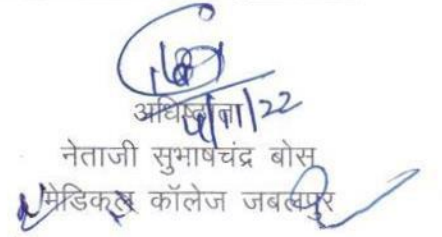 अधिष्ठाता
नेताजी सुभाषचंद्र बोस
मेडिकल कॉलेज जबलपुर